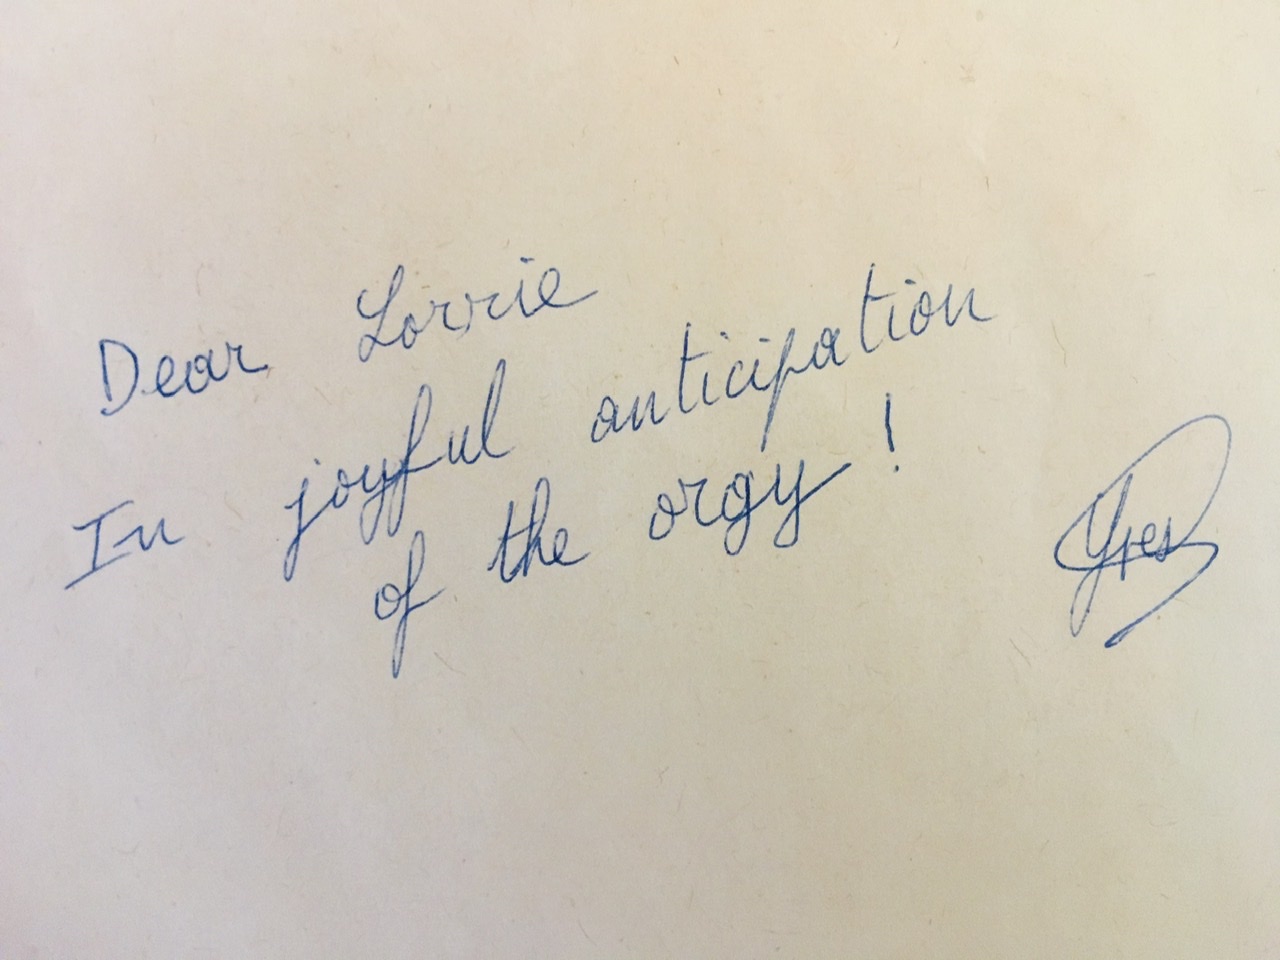 Dear Lorrie
In joyful anticipation
of the orgy!
Yves